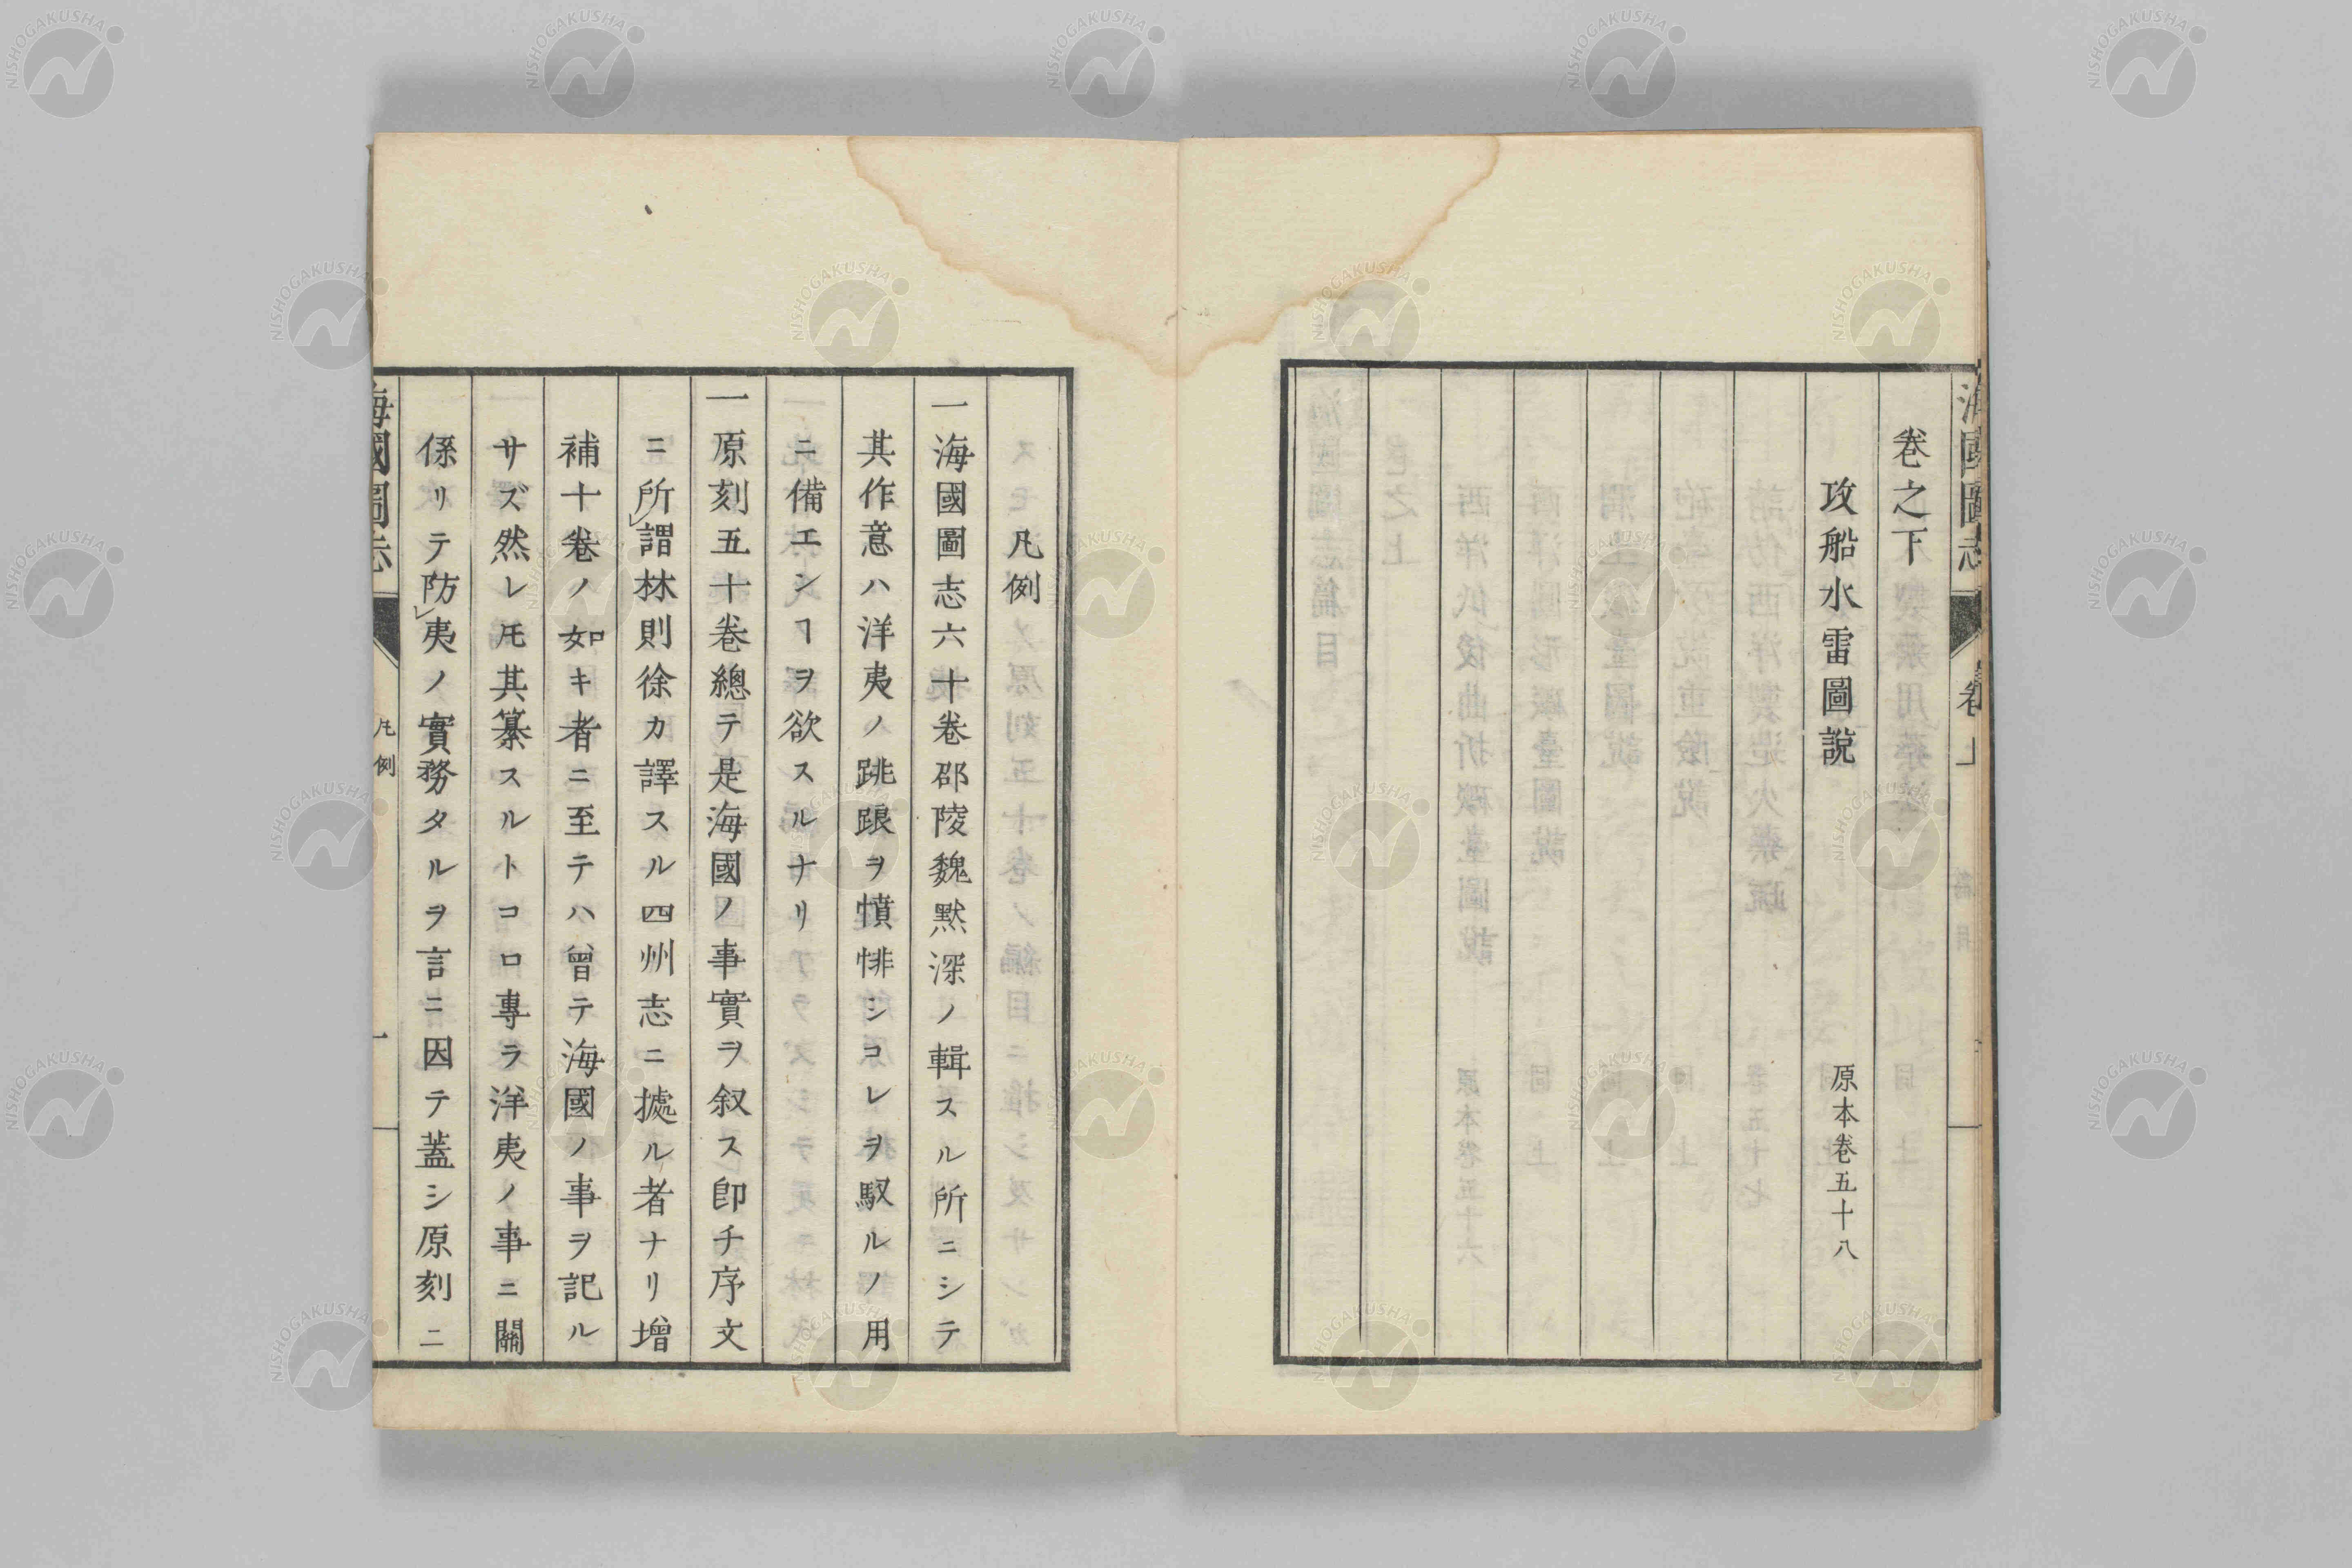 卷之下
攻船水雷圖說　原本卷五十八
凡例
一海國圖志六十卷邵陵魏默深ノ輯スル所ニシテ
其作意ハ洋夷ノ跳踉ヲ憤悱シコレヲ馭ルノ用
ニ備エンヿヲ欲スルナリ
一原刻五十卷總テ是海國ノ事實ヲ叙ス卽チ序文
ニ所謂林則徐カ譯スル四州志ニ據ル者ナリ增
補十卷ノ如キ者ニ至テハ曾テ海國ノ事ヲ記ル
サズ然レ𪜈其纂スルトコロ專ラ洋夷ノ事ニ關
係リテ防夷ノ實務タルヲ言ニ因テ蓋シ原刻ニ
海國圖志
凡例
一
海國圖志
卷上
NISHOGAKUSHA